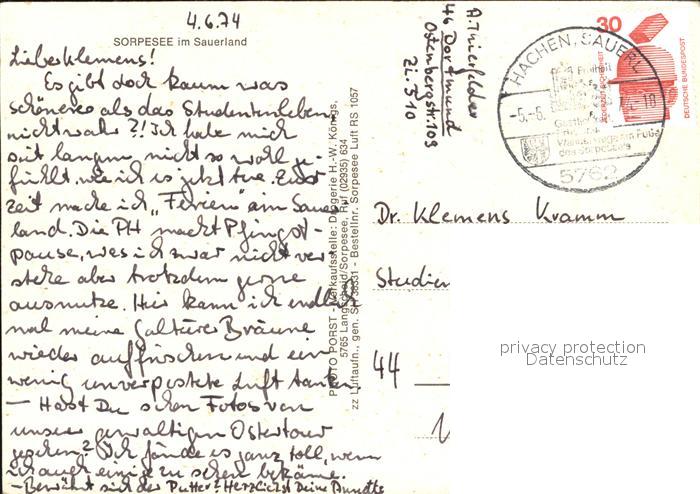 4.6.74
SORPESEE im Sauerland
Lieber Klemens!
Es gibt doch kaum was
schöneres als das Studentenleben,
nicht wahr?! Ich habe mich
seit langem nicht so wohl ge-
fühlt, wie ich es jetzt tue. Zur
Zeit mache ich „Ferien" im Sauer
land. Die PH macht Pfingst-
pause, was ich zwar nicht ver
stehe aber trotzdem gerne
ausnutze. Hier kann ich endlich
mal meine Bräune
wieder auffrischen und ein
wenig unverpestete Luft tanken
— Hast Du schon Fotos von
unserer gewaltigen Ostertour
gesehen? Ich fände es ganz toll, wenn
ich auch einige zu sehen bekäme.
– Bewährt sich der Putter? Herzlichst Deine Annette
PHOTO PORST - Verkaufsstelle: Drogerie H.-W. Königs,
5765 Langscheid/Sorpesee, Ruf (02935) 634
zz Luftaufn., gen. - Bestellnr. Sorpesee Luft RS 1057
A. Thierfelder
46 Dortmund
Ostenbergstr. 109
Zi. 510
HACHEN, SAUERL
-5.-6.
5762
30
DEUTSCHE BUNDESPOST
Dr. Klemens Kramm
Studien
44
privacy protection
Datenschutz